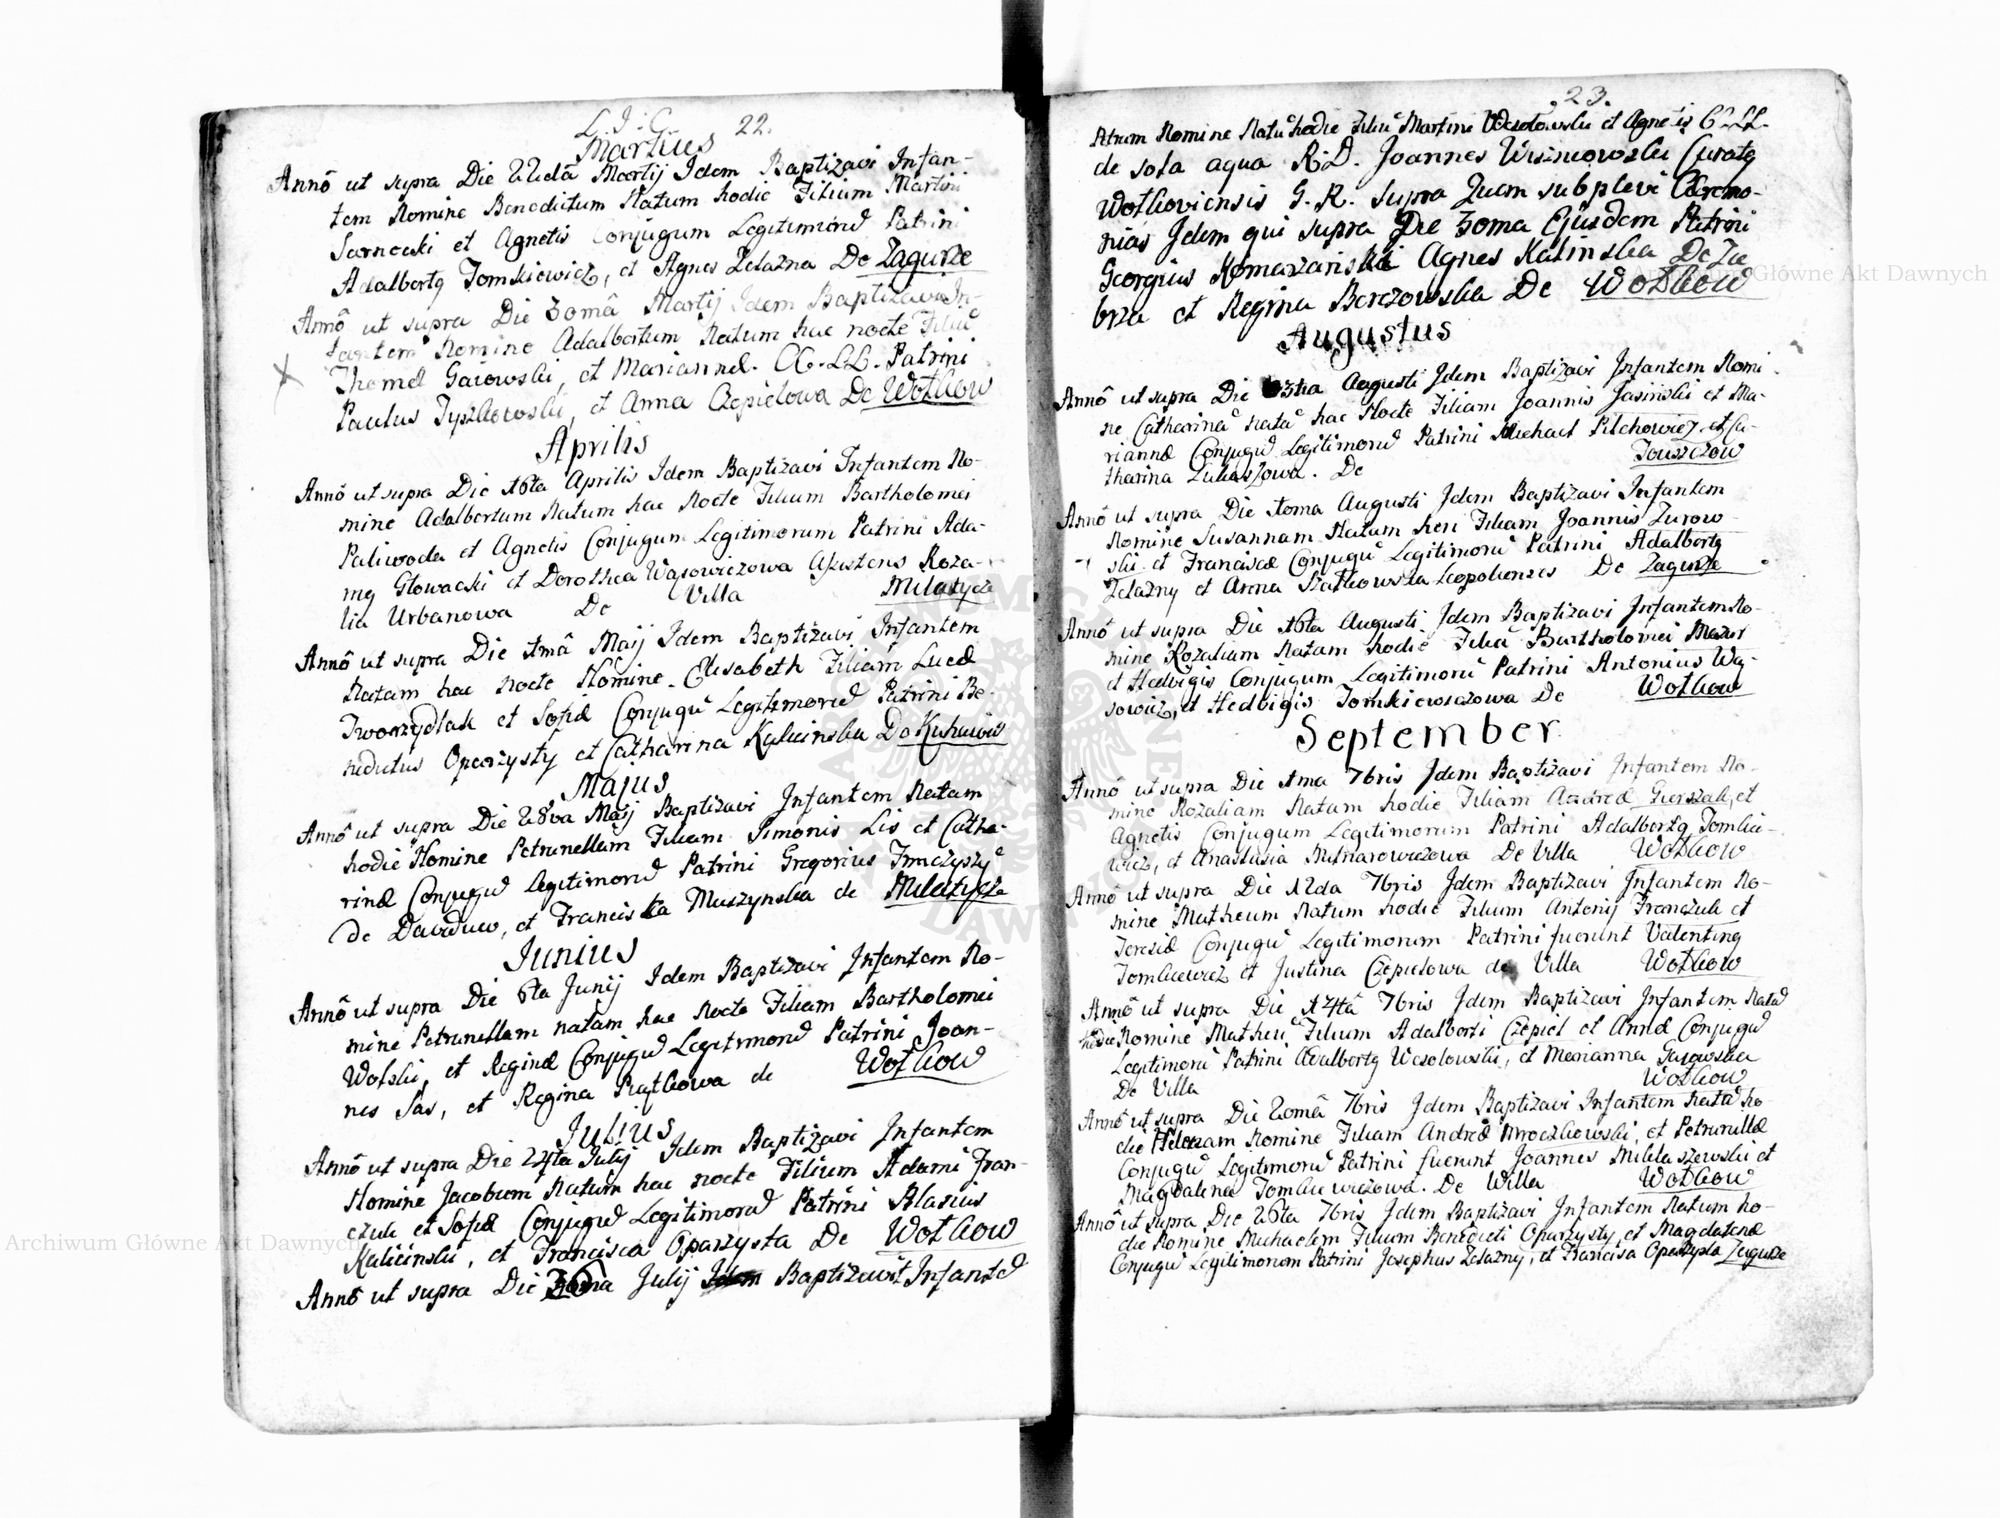 L. J. C. 22.
Martius
Annô ut supra Die 22dâ Martij Idem Baptizavi Infan-
tem Nomine Benedictum Natum hodie Filium Martini
Sarnecki et Agnetis Conjugum Legitimorū Patrini
Adalbertq Tomkiewicz, et Agnes Zelazna De Zagurze
Annô ut supra Die 30mâ Martij Idem Baptizavi In-
fantem Nomine Adalbertum Natum hac nocte Filiū
Thomæ Gaiowski, et Mariannæ. CC. LL. Patrini
Paulus Tyszkowski, et Anna Czepielowa De Wołkow
Aprilis
Annô ut supra Die 16ta Aprilis Idem Baptizavi Infantem No-
mine Adalbertum Natum hac Nocte Filium Bartholomei
Paliwoda et Agnetis Conjugum Legitimorum Patrini Ada-
mq Głowacki et Dorothea Wąsowiczowa Assistens Roza-
lia Urbanowa De Villa Milatycze
Annô ut supra Die 1mâ Maij Idem Baptizavi Infantem
Natam hac nocte Nomine Elisabeth Filiam Lucæ
Tworzydłak et Sofiæ Conjugū Legitimorū Patrini Be-
nedictus Oparzysty et Catharina Kalicinska De
Majus
Annô ut supra Die 28va Maij Baptizavi Infantem Natam
hodie Nomine Petrunellam Filiam Simonis Lis et Catha-
rinæ Conjugū legitimorū Patrini Gregorius
de Dawidow, et Franciska Muszynska de Milatycze
Junius
Annô ut supra Die 6ta Junij Idem Baptizavi Infantem No-
mine Petrunellam natam hac Nocte Filiam Bartholomei
Wolski, et Reginæ Conjugū Legitimorū Patrini Joan-
nes Sas, et Regina Piątkowa de Wołkow
Julius
Annô ut supra Die 24ta Julij Idem Baptizavi Infantem
Nomine Jacobum Natum hac nocte Filium Adami Fran-
czuk et Sofiæ Conjugū Legitimorū Patrini Blasius
Kalicinski, et Francisca Oparzysta De Wołkow
Annô ut supra Die Julij Baptizavit Infantē
23.
Atrum Nomine Natū hodie Filiū Martini Wesołowski et Agnetis CC. LL.
de sola aqua R. D. Joannes Wisniowski Curatq
Wołkoviensis G. R. Supra Quem subplevi Ceremo-
nias Idem qui supra Die 30ma Ejusdem Patrini
Georgius Agnes Kalinska De Za
brza et Regina Berezowska De Wołkow
Augustus
Annô ut supra Die 3tia Augusti Idem Baptizavi Infantem Nomi-
ne Catharinā Natā hac Nocte Filiam Joannis Jasinski et Ma-
riannæ Conjugū Legitimorū Patrini Michael Pilchowicz et Ca-
tharina Lukaszowa. De Touszczow
Annô ut supra Die Augusti Idem Baptizavi Infantem
Nomine Susannam Natam heri Filiam Joannis Zurow-
ski et Franciscæ Conjugū Legitimorū Patrini Adalbertq
Zelazny et Anna Szatkowska Leopolienses De Zagurze
Annô ut supra Die 16ta Augusti Idem Baptizavi Infantem No-
mine Rozaliam Natam hodie Filiā Bartholomei Mazur
et Hedvigis Conjugum Legitimorū Patrini Antonius Wą-
sowicz, et Hedvigis Tomkiewiczowa De Wołkow
September
Annô ut supra Die 1ma 7bris Idem Baptizavi Infantem No-
mine Rozaliam Natam hodie Filiam Andreæ Gierszak, et
Agnetis Conjugum Legitimorum Patrini Adalbertq Tomkie-
wicz, et Anastasia Mulnarowiczowa De Villa Wołkow
Annô ut supra Die 12da 7bris Idem Baptizavi Infantem No-
mine Matheum Natum hodie Filium Antonij Franczuk et
Teresiæ Conjugū Legitimorum Patrini fuerunt Valentinq
Tomkiewicz et Justina Czepielowa de Villa Wołkow
Annô ut supra Die 14tâ 7bris Idem Baptizavi Infantem Natū
hodie Nomine Matheū Filium Adalberti Czepiel et Annæ Conjugū
Legitimorū Patrini Adalbertq Wesolowski, et Marianna Gajowska
De Villa Wołkow
Annô ut supra Die 20mâ 7bris Idem Baptizavi Infantem Natū ho-
die Nomine Filiam Andreæ Mroczkowski, et Petrunellæ
Conjugū Legitimorū Patrini fuerunt Joannes Mikłaszewski et
Magdalena Tomkiewiczowa. De Willa Wołkow
Annô ut supra Die 26ta 7bris Idem Baptizavi Infantem Natum ho-
die Nomine Michaelem Filium Benedicti Oparzysty, et Magdalenæ
Conjugū Legitimorum Patrini Josephus Zelazny, et Francisca Oparzysta Zagurze
Archiwum Główne Akt Dawnych
Archiwum Główne Akt Dawnych